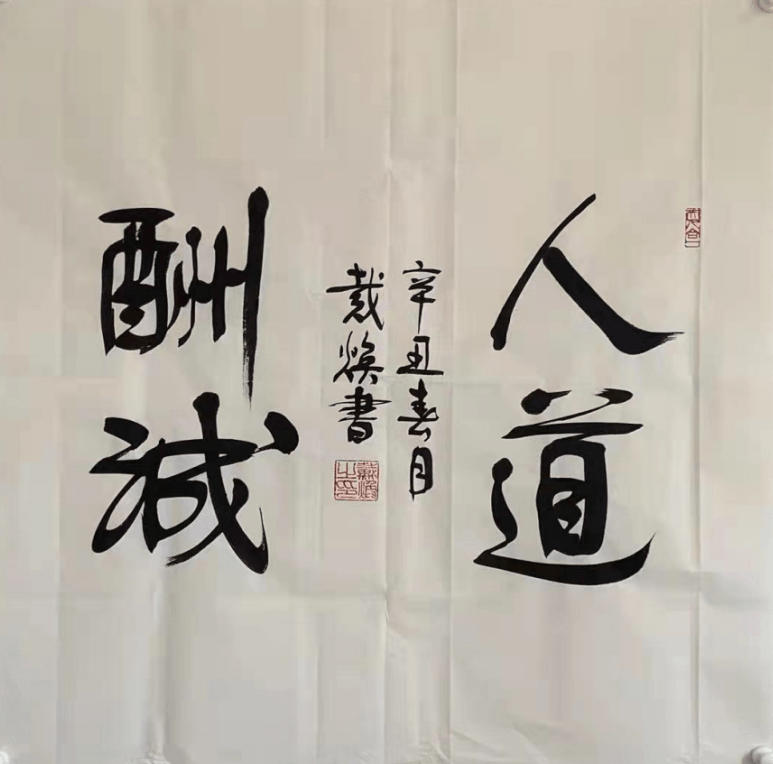 人道
酬诚
辛丑春月
戴焕書